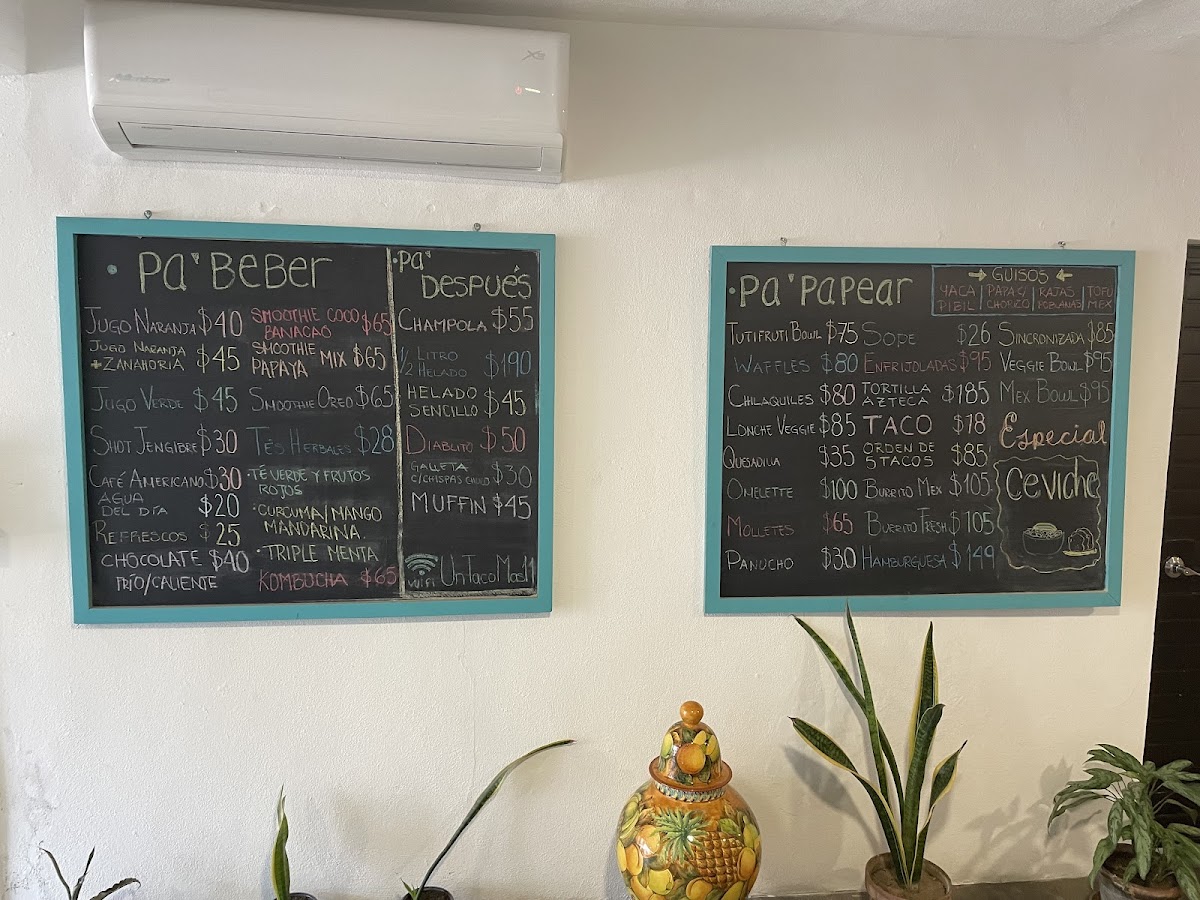 Pa' Beber
Jugo Naranja $40
Jugo Naranja
+ Zanahoria $45
Jugo Verde $45
Shot Jengibre $30
Café Americano $30
Agua
del día $20
Refrescos $25
Chocolate $40
frío/caliente
Smoothie Coco
Banacao $65
Smoothie
Papaya Mix $65
Smoothie Oreo $65
Tés Herbales $28
·Té verde y frutos
rojos
·Curcuma/Mango
Mandarina.
·Triple Menta
Kombucha $65
·Pa'
Después
Champola $55
1/2 Litro
Helado $190
Helado
Sencillo $45
Diablito $50
Galleta
c/chispas $30
Muffin $45
WiFi
·Pa' Papear
Guisos
Yaca
Pibil
Papa c/
Chorizo
Rajas
Poblanas
Tofu
Mex
Tutifruti Bowl $75
Waffles $80
Chilaquiles $80
Lonche Veggie $85
Quesadilla $35
Omelette $100
Molletes $65
Panucho $30
Sope $26
Enfrijoladas $95
Tortilla
Azteca $185
Taco $18
Orden de
5 Tacos $85
Burrito Mex $105
Burrito Fresh $105
Hamburguesa $149
Sincronizada $85
Veggie Bowl $95
Mex Bowl $95
Especial
Ceviche